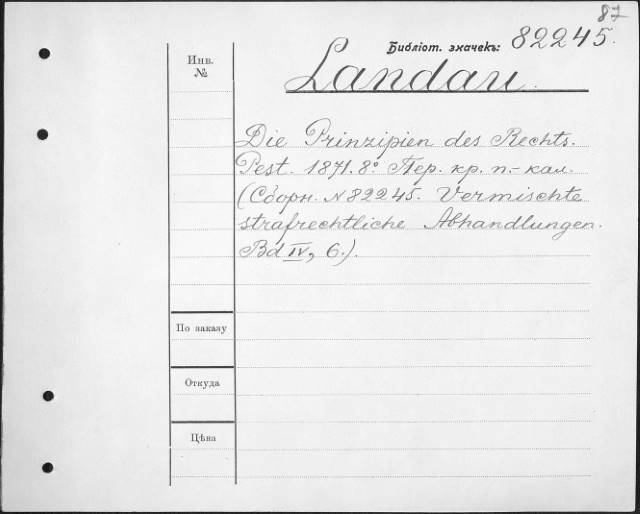 87
Библіот. значекъ: 82245.
Инв.
№
Landau.
Die Prinzipien des Rechts.
Pest. 1871. 8º Пер. кр. п.-кал.
(Сборн. № 82245. Vermischte
strafrechtliche Abhandlungen.
Bd IV, 6.).
По заказу
Откуда
Цѣна